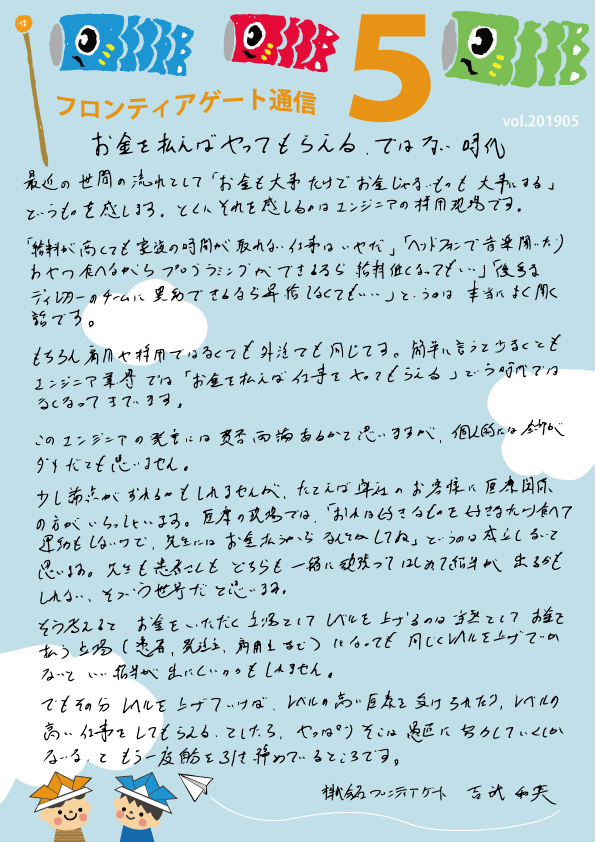 フロンティアゲート通信
5
vol.201905
お金を払えばやってもらえる、ではない時代
最近の世間の流れとして「お金も大事だけでお金じゃないものも大事にする」
というものを感じます。とくにそれを感じるのはエンジニアの採用現場です。
「給料が高くても家族の時間が取れない仕事はいやだ」「ヘッドフォンで音楽聞いたり
おやつ食べながらプログラミングができるなら給料低くなってもいい」「後輩を
ディレクターのチームに異動できるなら昇給しなくてもいい」というのは本当によく聞く
話です。
もちろん雇用や採用ではなくても外注でも同じです。簡単に言うと少なくとも
エンジニア業界では「お金を払えば仕事をやってもらえる」という時代では
なくなってきています。
このエンジニアの発言には賛否両論あるかと思いますが、個人的には全部が
ダメだとも思いません。
少し論点がずれるかもしれませんが、たとえば弊社のお客様に医療関係
の方がいらっしゃいます。医療の現場では、「おれは好きなものを好きなだけ食べて
運動もしないけど、先生にはお金払うからなんとかしてね」というのは成立しないと
思います。先生も患者さんもどちらも一緒に頑張ってはじめて結果が出るかも
しれない、そういう世界だと思います。
そう考えると お金をいただく立場としてレベルを上げるのは当然として お金を
払う立場(患者、発注主、雇用主など)になっても同じくレベルを上げていか
ないと いい結果が出にくいのかもしれません。
でもその分レベルを上げていけば、レベルの高い医療を受けられたり、レベルの
高い仕事をしてもらえる。でしたら、やっぱりそこは愚直に努力していくしか
ないな、ともう一度褌を引き締めているところです。
株式会社フロンティアゲート 吉武 和実